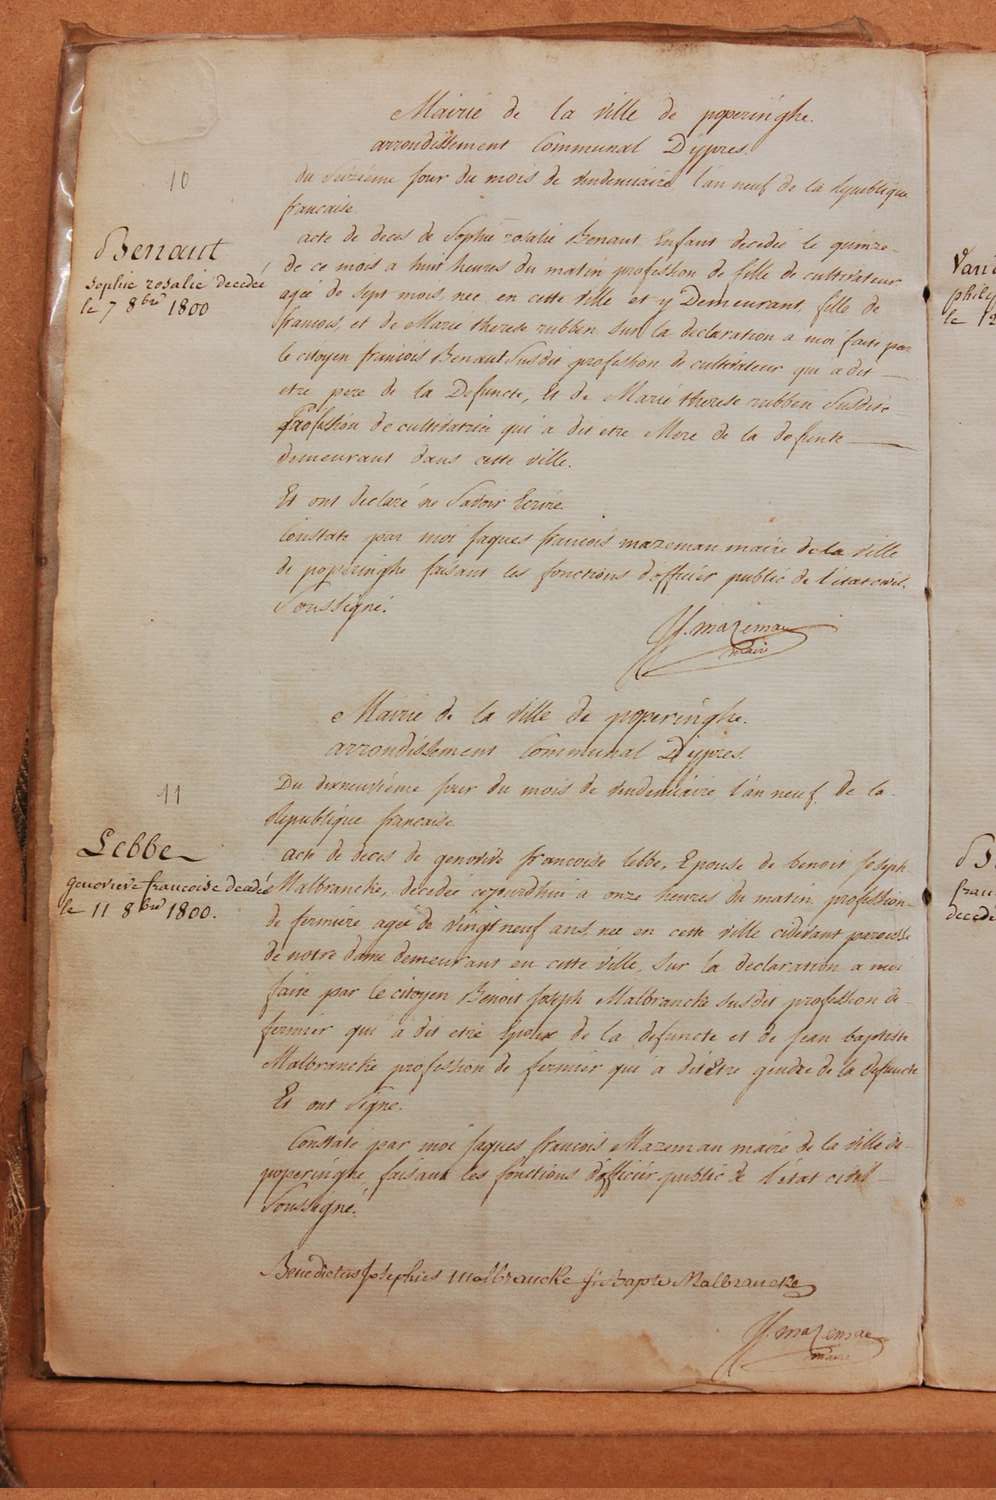 Mairié de la ville de poperinghe.
arrondissement Communal D'ypres.
10
du seizième jour du mois de vendemiaire l'an neuf de la republique
francaise.
Benaut
Sophie rosalie decedée
le 7 8bre 1800
acte de deces de Sophie rosalie Benaut Enfant decedeé le quinze
de ce mois a huit heures du matin profession de fille de cultivateur
ageé de sept mois, neé en cette ville et y Demeurant, fille de
francois, et de Marie therese rubben sur la declaration a moi faite par
le citoyen francois Benaut Susdit profession de cultivateur qui a dit
etre pere de la Defuncte, Et de Marie therese rubben Susdite
profession de cultivatrice qui a dit etre Mere de la defunte
demeurant dans cette ville.
Et ont declaré ne Savoir Ecrire.
Constaté par moi Jaques francois mazeman maire de la ville
de poperinghe faisant les fonctions d'officier public de l'état civil.
Soussigné.
J. f. mazeman
maire
Mairie de la ville de poperinghe.
arrondissement Communal D'ypres.
11
Du dixneuvième jour du mois de vendemiaire l'an neuf de la
Republique francaise
Lebbe
genovieve francoise decedée
le 11 8bre 1800.
acte de deces de genovive francoise lebbe, Epouse de benoit Joseph
Malbrancke, decedeé aujourdhui a onze heures du matin profession
de fermiere ageé de vingt neuf ans, neé en cette ville cidevant paroisse
de notre dame demeurant en cette ville, sur la declaration a moi
faite par le citoyen Benoit Joseph Malbrancke susdit profession de
fermier qui a dit etre Epoux de la defuncte et de jean baptiste
Malbrancke profession de fermier qui a dit Etre gendre de la defuncte
Et ont Signé.
Constaté par moi Jaques francois Mazeman maire de la ville de
poperinghe faisant les fonctions d'officier public de l'état civil
Soussigné.
Benedictus Josephus malbrancke ji bapte Malbrancke
J. f. mazeman
maire
le 12
decedé